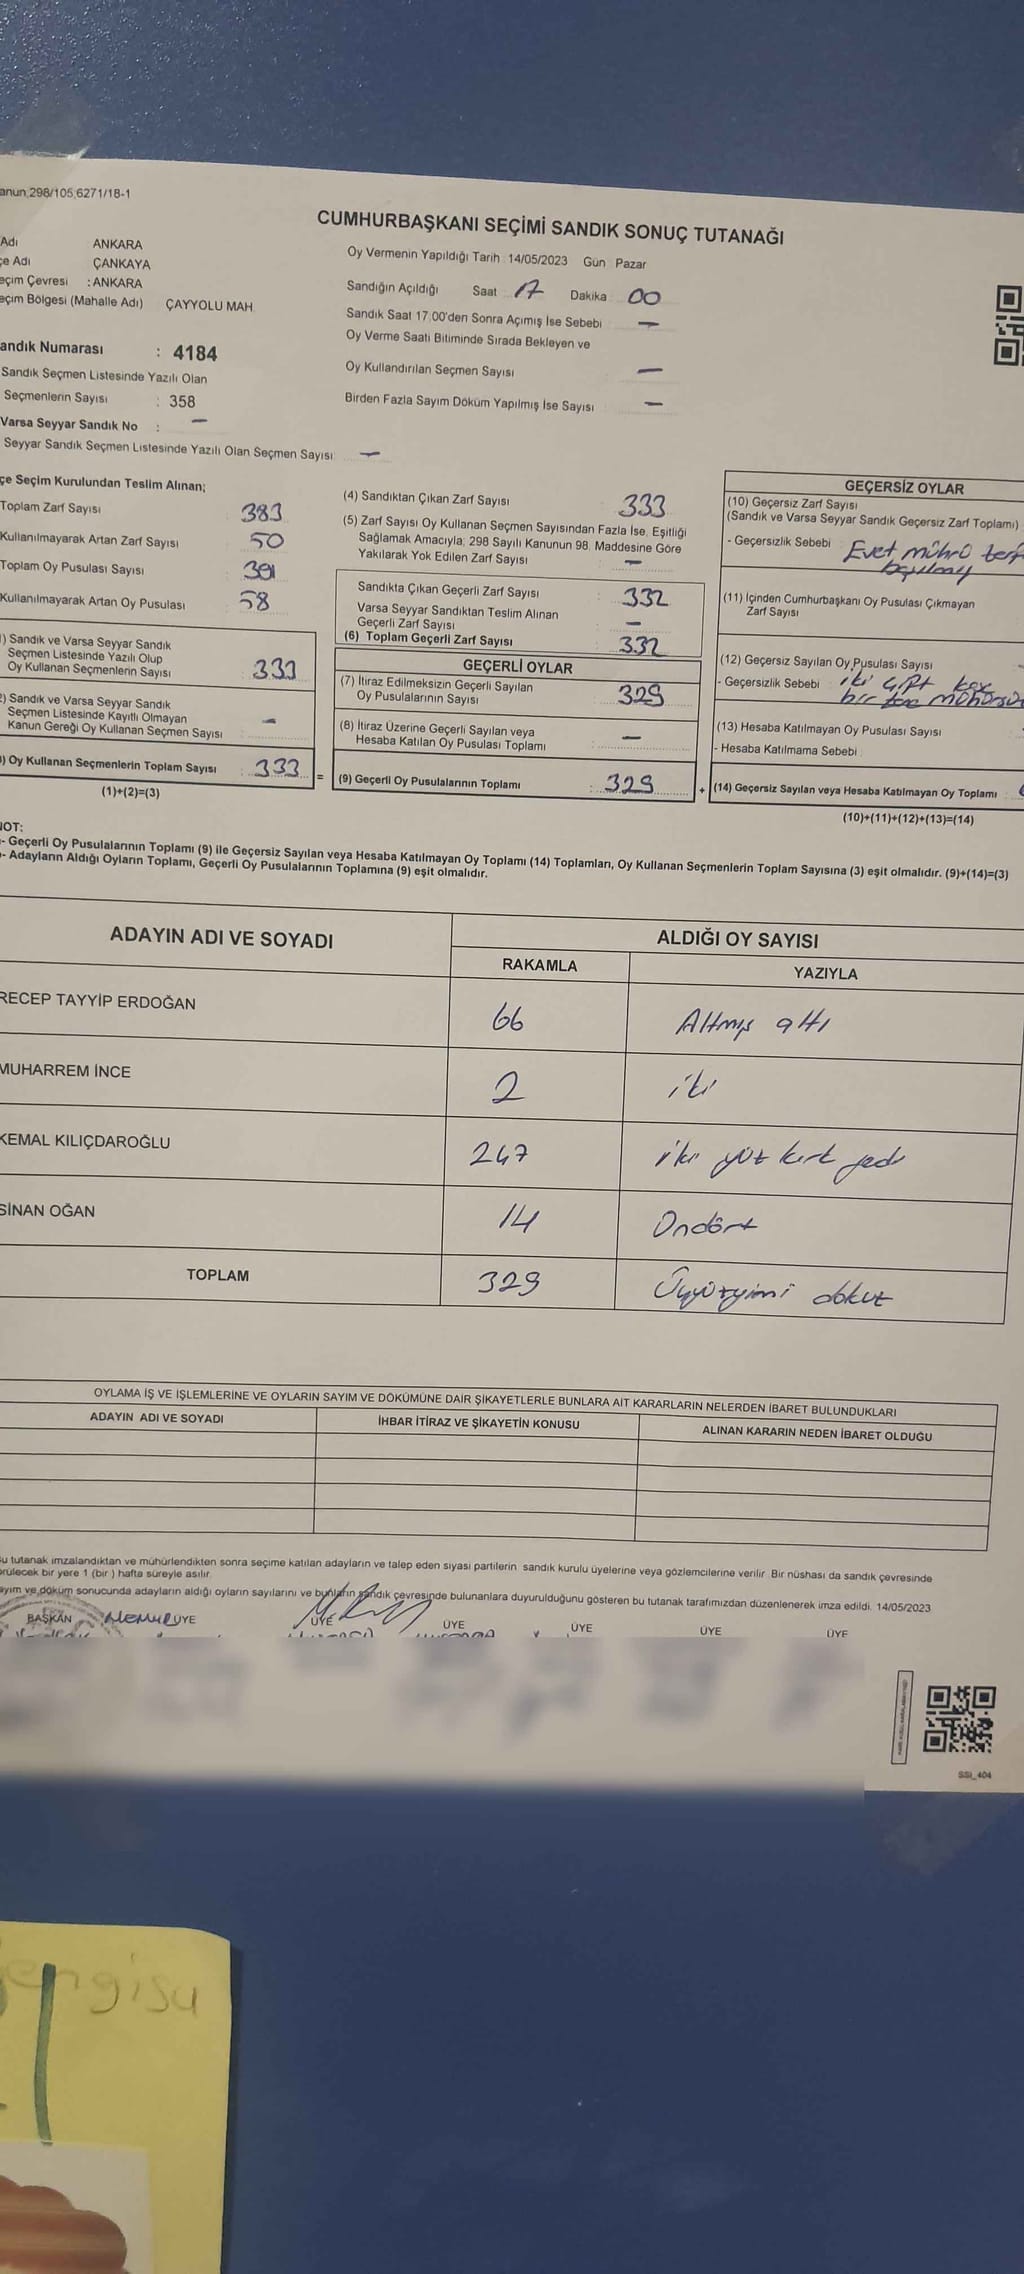 anun,298/105,6271/18-1
CUMHURBAŞKANI SEÇİMİ SANDIK SONUÇ TUTANAĞI
Adı ANKARA
çe Adı ÇANKAYA
eçim Çevresi : ANKARA
eçim Bölgesi (Mahalle Adı) ÇAYYOLU MAH
andık Numarası : 4184
Sandık Seçmen Listesinde Yazılı Olan
Seçmenlerin Sayısı : 358
Varsa Seyyar Sandık No : -
Seyyar Sandık Seçmen Listesinde Yazılı Olan Seçmen Sayısı -
Oy Vermenin Yapıldığı Tarih 14/05/2023 Gün Pazar
Sandığın Açıldığı Saat 17 Dakika 00
Sandık Saat 17.00'den Sonra Açımış İse Sebebi -
Oy Verme Saati Bitiminde Sırada Bekleyen ve
Oy Kullandırılan Seçmen Sayısı -
Birden Fazla Sayım Döküm Yapılmış İse Sayısı -
çe Seçim Kurulundan Teslim Alınan;
Toplam Zarf Sayısı : 383
Kullanılmayarak Artan Zarf Sayısı : 50
Toplam Oy Pusulası Sayısı : 391
Kullanılmayarak Artan Oy Pusulası : 58
) Sandık ve Varsa Seyyar Sandık
Seçmen Listesinde Yazılı Olup
Oy Kullanan Seçmenlerin Sayısı : 333
2) Sandık ve Varsa Seyyar Sandık
Seçmen Listesinde Kayıtlı Olmayan
Kanun Gereği Oy Kullanan Seçmen Sayısı : -
) Oy Kullanan Seçmenlerin Toplam Sayısı : 333 =
(1)+(2)=(3)
(4) Sandıktan Çıkan Zarf Sayısı : 333
(5) Zarf Sayısı Oy Kullanan Seçmen Sayısından Fazla İse, Eşitliği
Sağlamak Amacıyla; 298 Sayılı Kanunun 98. Maddesine Göre
Yakılarak Yok Edilen Zarf Sayısı : -
Sandıkta Çıkan Geçerli Zarf Sayısı : 332
Varsa Seyyar Sandıktan Teslim Alınan
Geçerli Zarf Sayısı : -
(6) Toplam Geçerli Zarf Sayısı : 332
GEÇERLİ OYLAR
(7) İtiraz Edilmeksizin Geçerli Sayılan
Oy Pusulalarının Sayısı : 329
(8) İtiraz Üzerine Geçerli Sayılan veya
Hesaba Katılan Oy Pusulası Toplamı : -
(9) Geçerli Oy Pusulalarının Toplamı : 329 +
GEÇERSİZ OYLAR
(10) Geçersiz Zarf Sayısı
(Sandık ve Varsa Seyyar Sandık Geçersiz Zarf Toplamı)
- Geçersizlik Sebebi : Evet mührü
(11) İçinden Cumhurbaşkanı Oy Pusulası Çıkmayan
Zarf Sayısı
(12) Geçersiz Sayılan Oy Pusulası Sayısı
- Geçersizlik Sebebi : iki çift
bir
(13) Hesaba Katılmayan Oy Pusulası Sayısı
- Hesaba Katılmama Sebebi :
(14) Geçersiz Sayılan veya Hesaba Katılmayan Oy Toplamı :
(10)+(11)+(12)+(13)=(14)
NOT:
- Geçerli Oy Pusulalarının Toplamı (9) ile Geçersiz Sayılan veya Hesaba Katılmayan Oy Toplamı (14) Toplamları, Oy Kullanan Seçmenlerin Toplam Sayısına (3) eşit olmalıdır. (9)+(14)=(3)
- Adayların Aldığı Oyların Toplamı, Geçerli Oy Pusulalarının Toplamına (9) eşit olmalıdır.
ADAYIN ADI VE SOYADI ALDIĞI OY SAYISI
RAKAMLA YAZIYLA
RECEP TAYYİP ERDOĞAN 66 Altmış altı
MUHARREM İNCE 2 iki
KEMAL KILIÇDAROĞLU 247 iki yüz kırk yedi
SİNAN OĞAN 14 Ondört
TOPLAM 329 Üçyüzyirmi dokuz
OYLAMA İŞ VE İŞLEMLERİNE VE OYLARIN SAYIM VE DÖKÜMÜNE DAİR ŞİKAYETLERLE BUNLARA AİT KARARLARIN NELERDEN İBARET BULUNDUKLARI
ADAYIN ADI VE SOYADI İHBAR İTİRAZ VE ŞİKAYETİN KONUSU ALINAN KARARIN NEDEN İBARET OLDUĞU
u tutanak imzalandıktan ve mühürlendikten sonra seçime katılan adayların ve talep eden siyasi partilerin sandık kurulu üyelerine veya gözlemcilerine verilir. Bir nüshası da sandık çevresinde
rülecek bir yere 1 (bir ) hafta süreyle asılır.
ayım ve döküm sonucunda adayların aldığı oyların sayılarını ve bunların sandık çevresinde bulunanlara duyurulduğunu gösteren bu tutanak tarafımızdan düzenlenerek imza edildi. 14/05/2023
BAŞKAN MEMUR ÜYE ÜYE ÜYE ÜYE ÜYE ÜYE
SSI_404
engisu